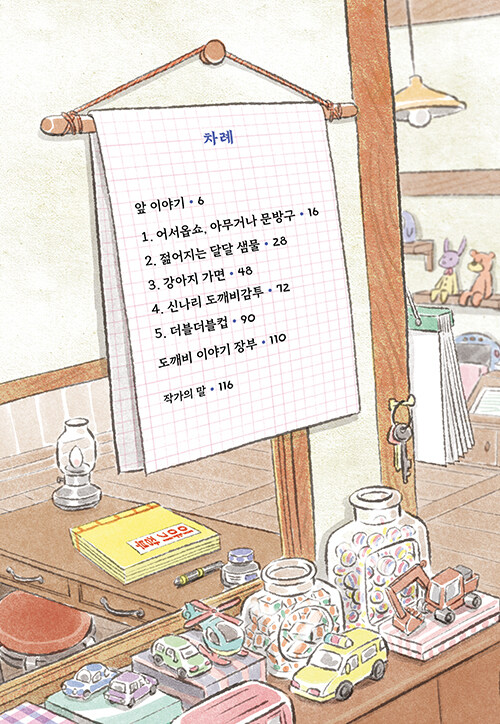 차례
앞 이야기 • 6
1. 어서옵쇼, 아무거나 문방구 • 16
2. 젊어지는 달달 샘물 • 28
3. 강아지 가면 • 48
4. 신나리 도깨비감투 • 72
5. 더블더블컵 • 90
도깨비 이야기 장부 • 110
작가의 말 • 116
이야기 장부